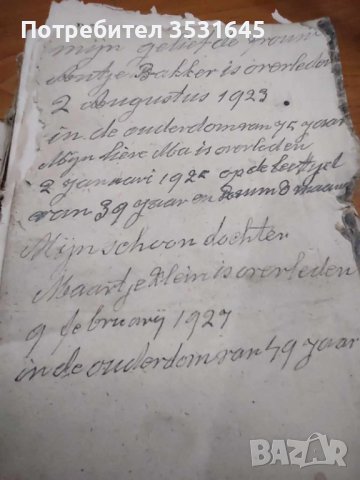 Потребител 3531645
mijn geliefde vrouw
Antje Bakker is overleden
2 augustus 1923
in de ouderdom van 75 jaar
Mijn lieve Ma is overleden
2 januari 192 op de leeftyd
van 39 jaar en maan
Mijn schoon dochter
Maartje Klein is overleden
9 februarij 1927
in de ouderdom van 49 jaar
BAZAR